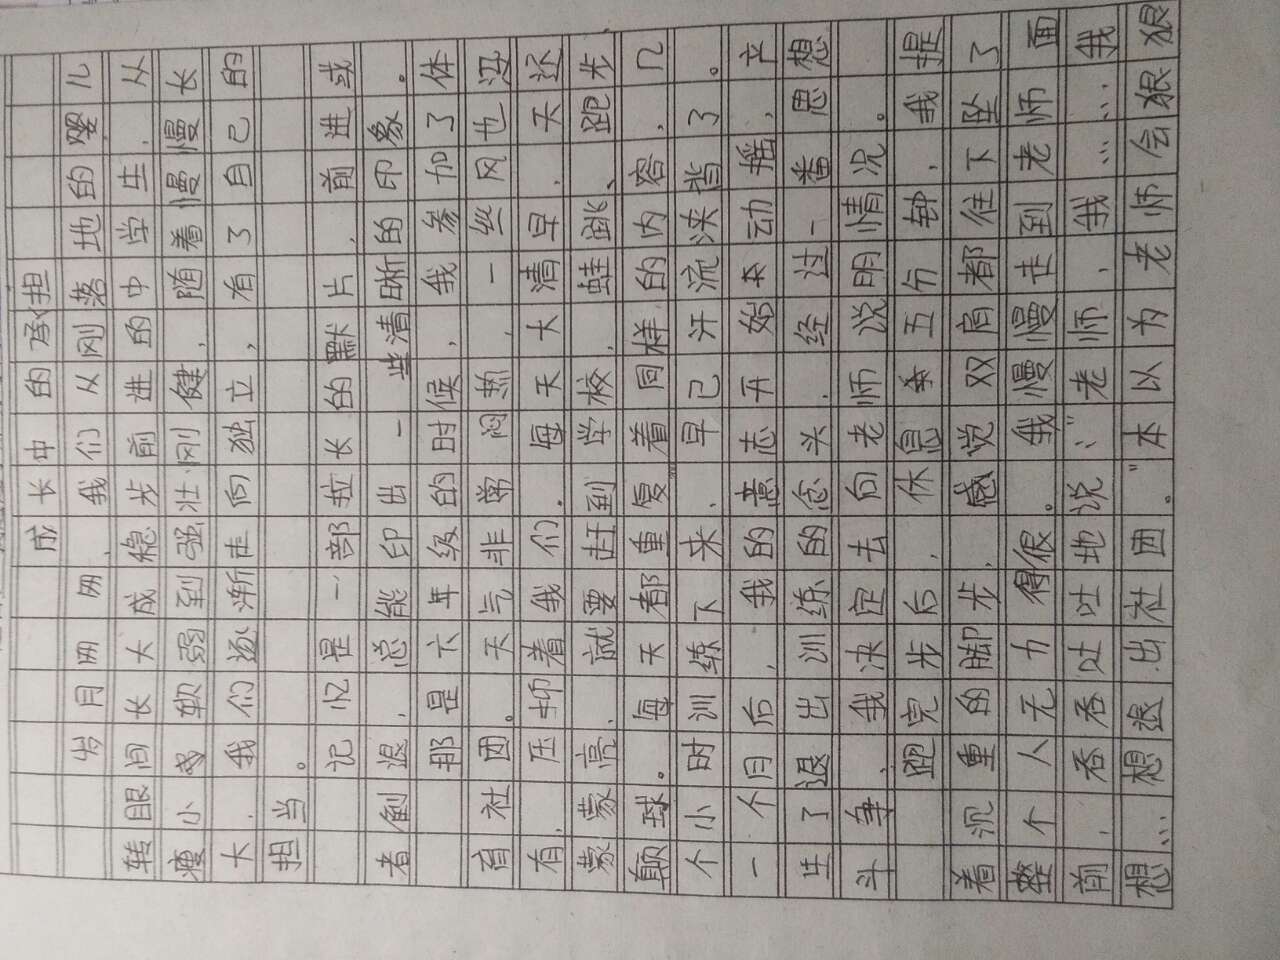 成长中的承担
岁月,我们从刚落地的婴儿
转眼间长大成稳步前进的中学生,从
瘦小或软弱到强壮刚健,随着慢慢长
大,我们逐渐走向独立,有了自己的
担当。
记忆是一部拉长的默片,前进或
者倒退,总能印出一些清晰的印象。
那是六年级的时候,我参加了体
育社团。天气非常闷热,一丝风也没
有,压抑着我们。每天天大清早,天还
蒙蒙亮,就要赶到学校,蛙跳、跑步,
颠球。每天都重复着同样的内容,几
个小时训练下来,早已汗流浃背了。
一个月后,我的意志开始动摇,产
生了退出训练的念头,经过一番思想
斗争,我决定去向老师说明情况。
跑完步后,休息五分钟,我提
着沉重的脚步,感觉双肩都往下坠了
整个人无力得很。我慢慢走到老师面
前,吞吞吐吐地说:“老师,我……我
想……想退出社团。”本以为老师会狠狠